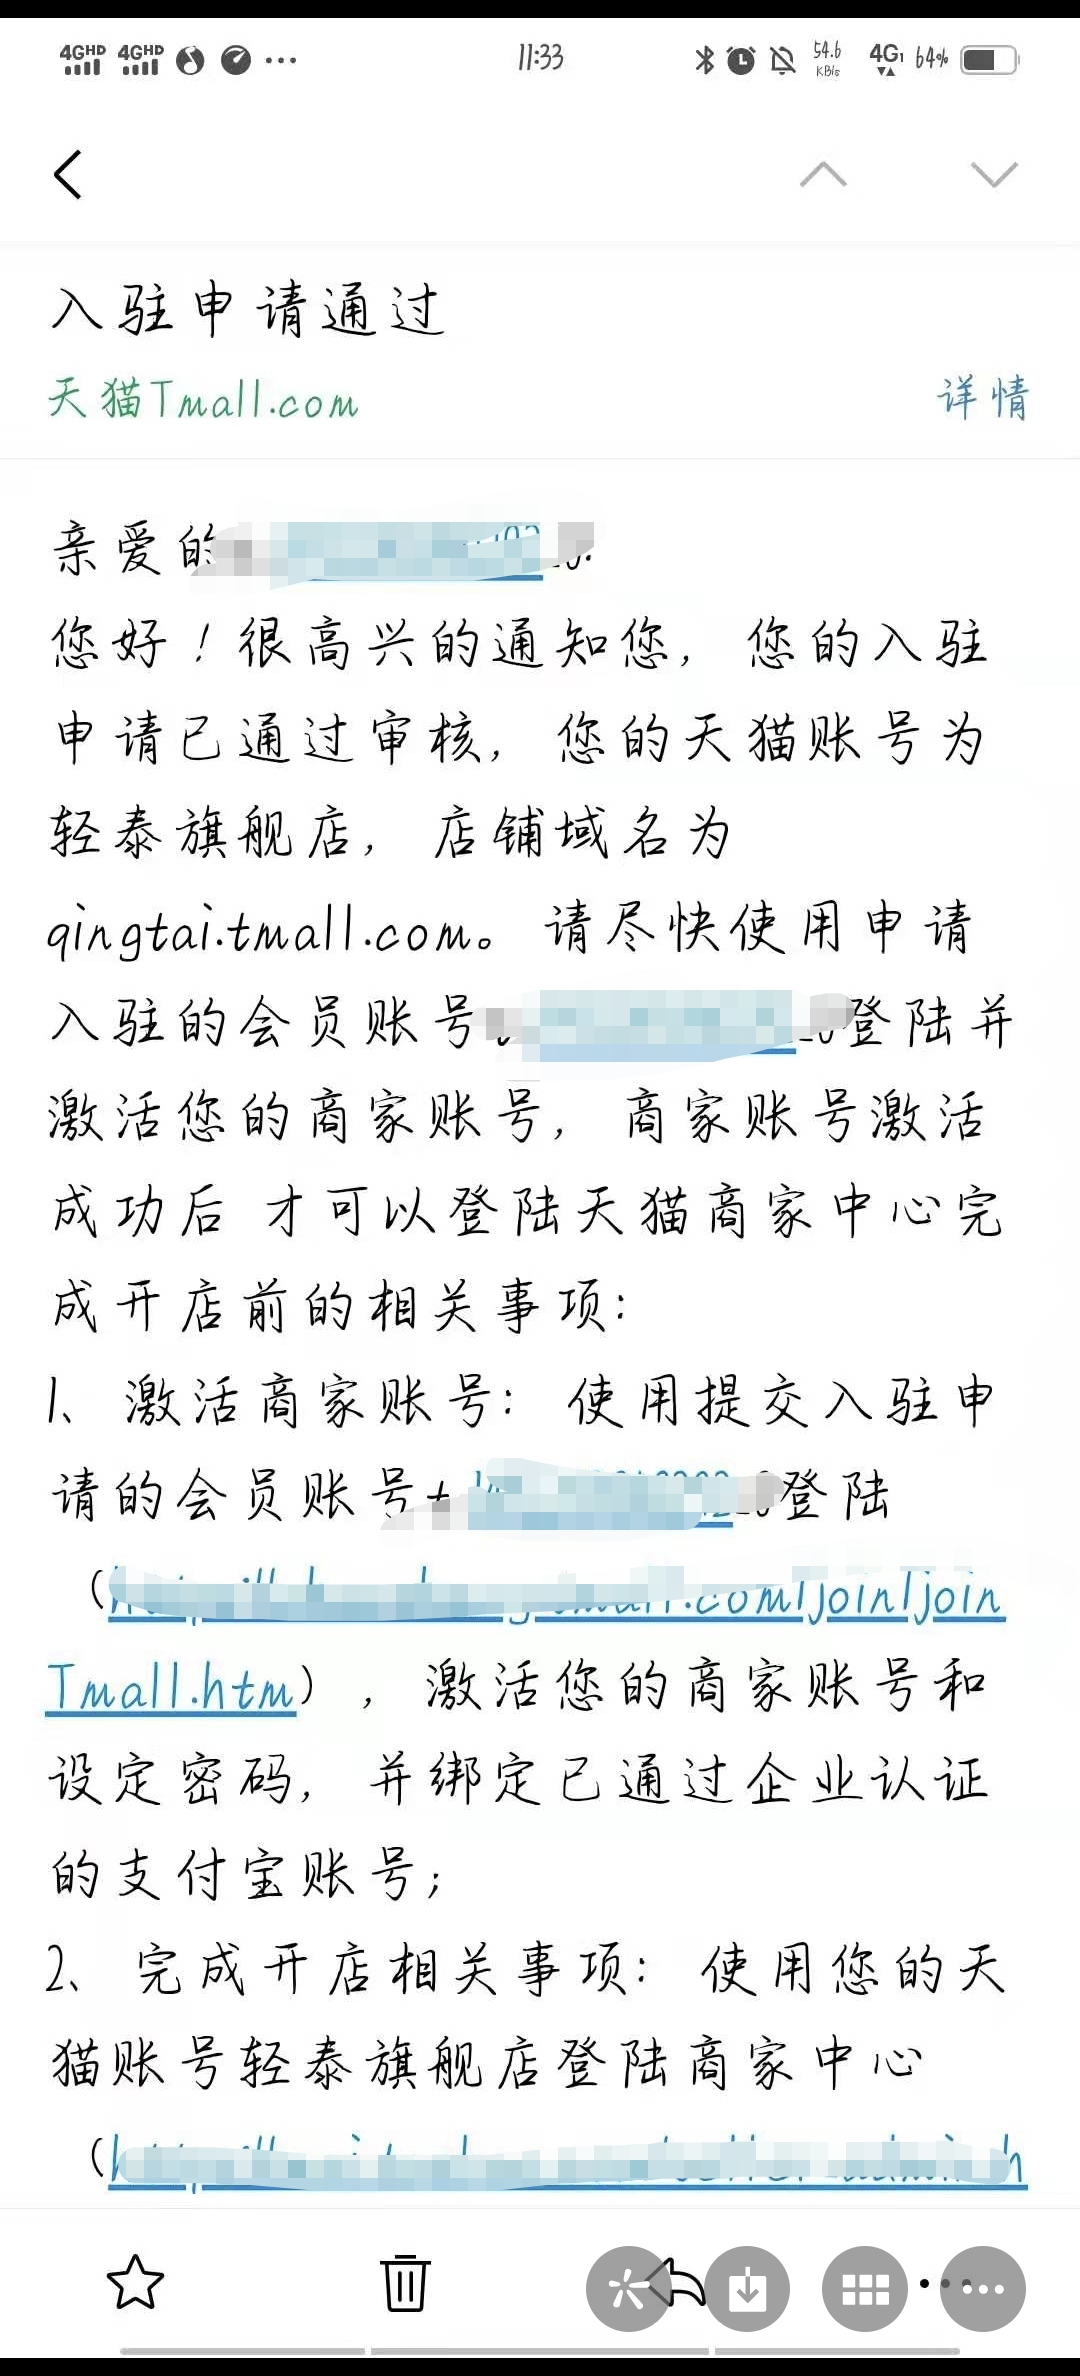 4GHD 4GHD ... 11:33 54.6 KB/s 4G 64%
入驻申请通过
天猫Tmall.com 详情
亲爱的
您好！很高兴的通知您，您的入驻
申请已通过审核，您的天猫账号为
轻泰旗舰店，店铺域名为
qingtai.tmall.com。请尽快使用申请
入驻的会员账号 登陆并
激活您的商家账号，商家账号激活
成功后 才可以登陆天猫商家中心完
成开店前的相关事项：
1、激活商家账号：使用提交入驻申
请的会员账号+ 登陆
（ .com/join/join
Tmall.htm），激活您的商家账号和
设定密码，并绑定已通过企业认证
的支付宝账号；
2、完成开店相关事项：使用您的天
猫账号轻泰旗舰店登陆商家中心
（